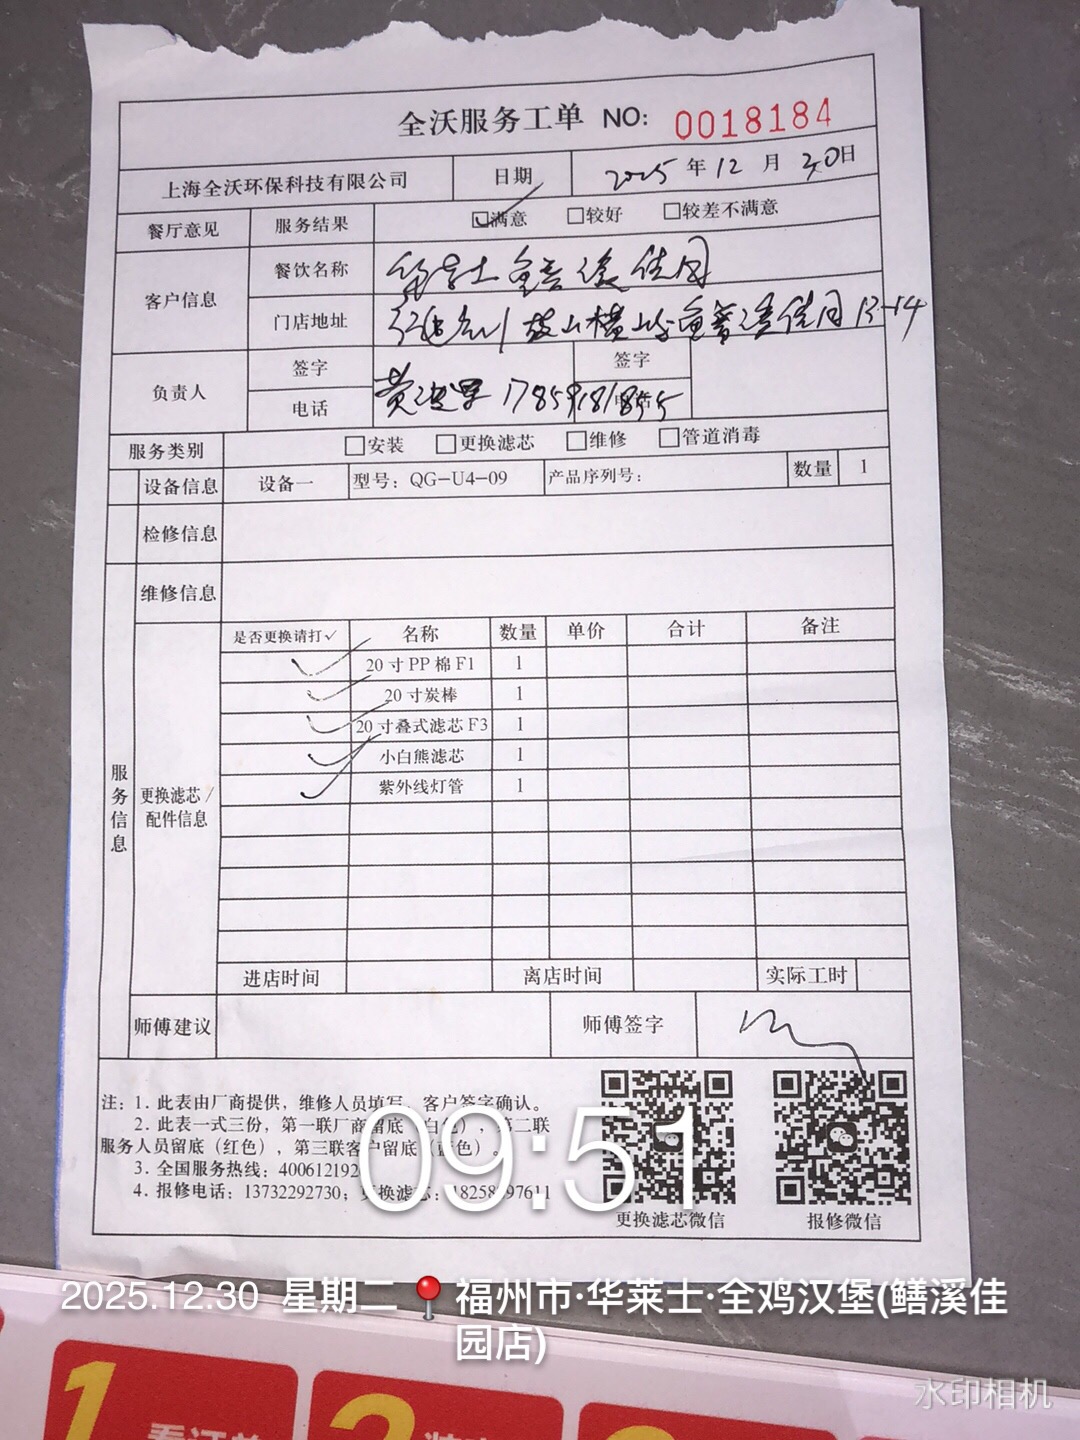 全沃服务工单 NO: 0018184
上海全沃环保科技有限公司 日期 2025年12月30日
餐厅意见 服务结果 ☑满意 □较好 □较差不满意
客户信息 餐饮名称 华莱士鳝溪佳园
门店地址 福州鼓山横屿鳝溪佳园13-14
负责人 签字 签字
电话 黄 17859181855
服务类别 □安装 □更换滤芯 □维修 □管道消毒
设备信息 设备一 型号：QG-U4-09 产品序列号： 数量 1
检修信息
维修信息
服务信息
更换滤芯/配件信息
是否更换请打✓ 名称 数量 单价 合计 备注
✓ 20寸PP棉F1 1
✓ 20寸炭棒 1
✓ 20寸叠式滤芯F3 1
✓ 小白熊滤芯 1
✓ 紫外线灯管 1
进店时间 离店时间 实际工时
师傅建议 师傅签字
注：1. 此表由厂商提供，维修人员填写，客户签字确认。
2. 此表一式三份，第一联厂商留底（白色），第二联
服务人员留底（红色），第三联客户留底（蓝色）。
3. 全国服务热线：400612192
4. 报修电话：13732292730；更换滤芯：
更换滤芯微信 报修微信
09:51
2025.12.30 星期二 福州市·华莱士·全鸡汉堡(鳝溪佳
园店)
1 2
水印相机